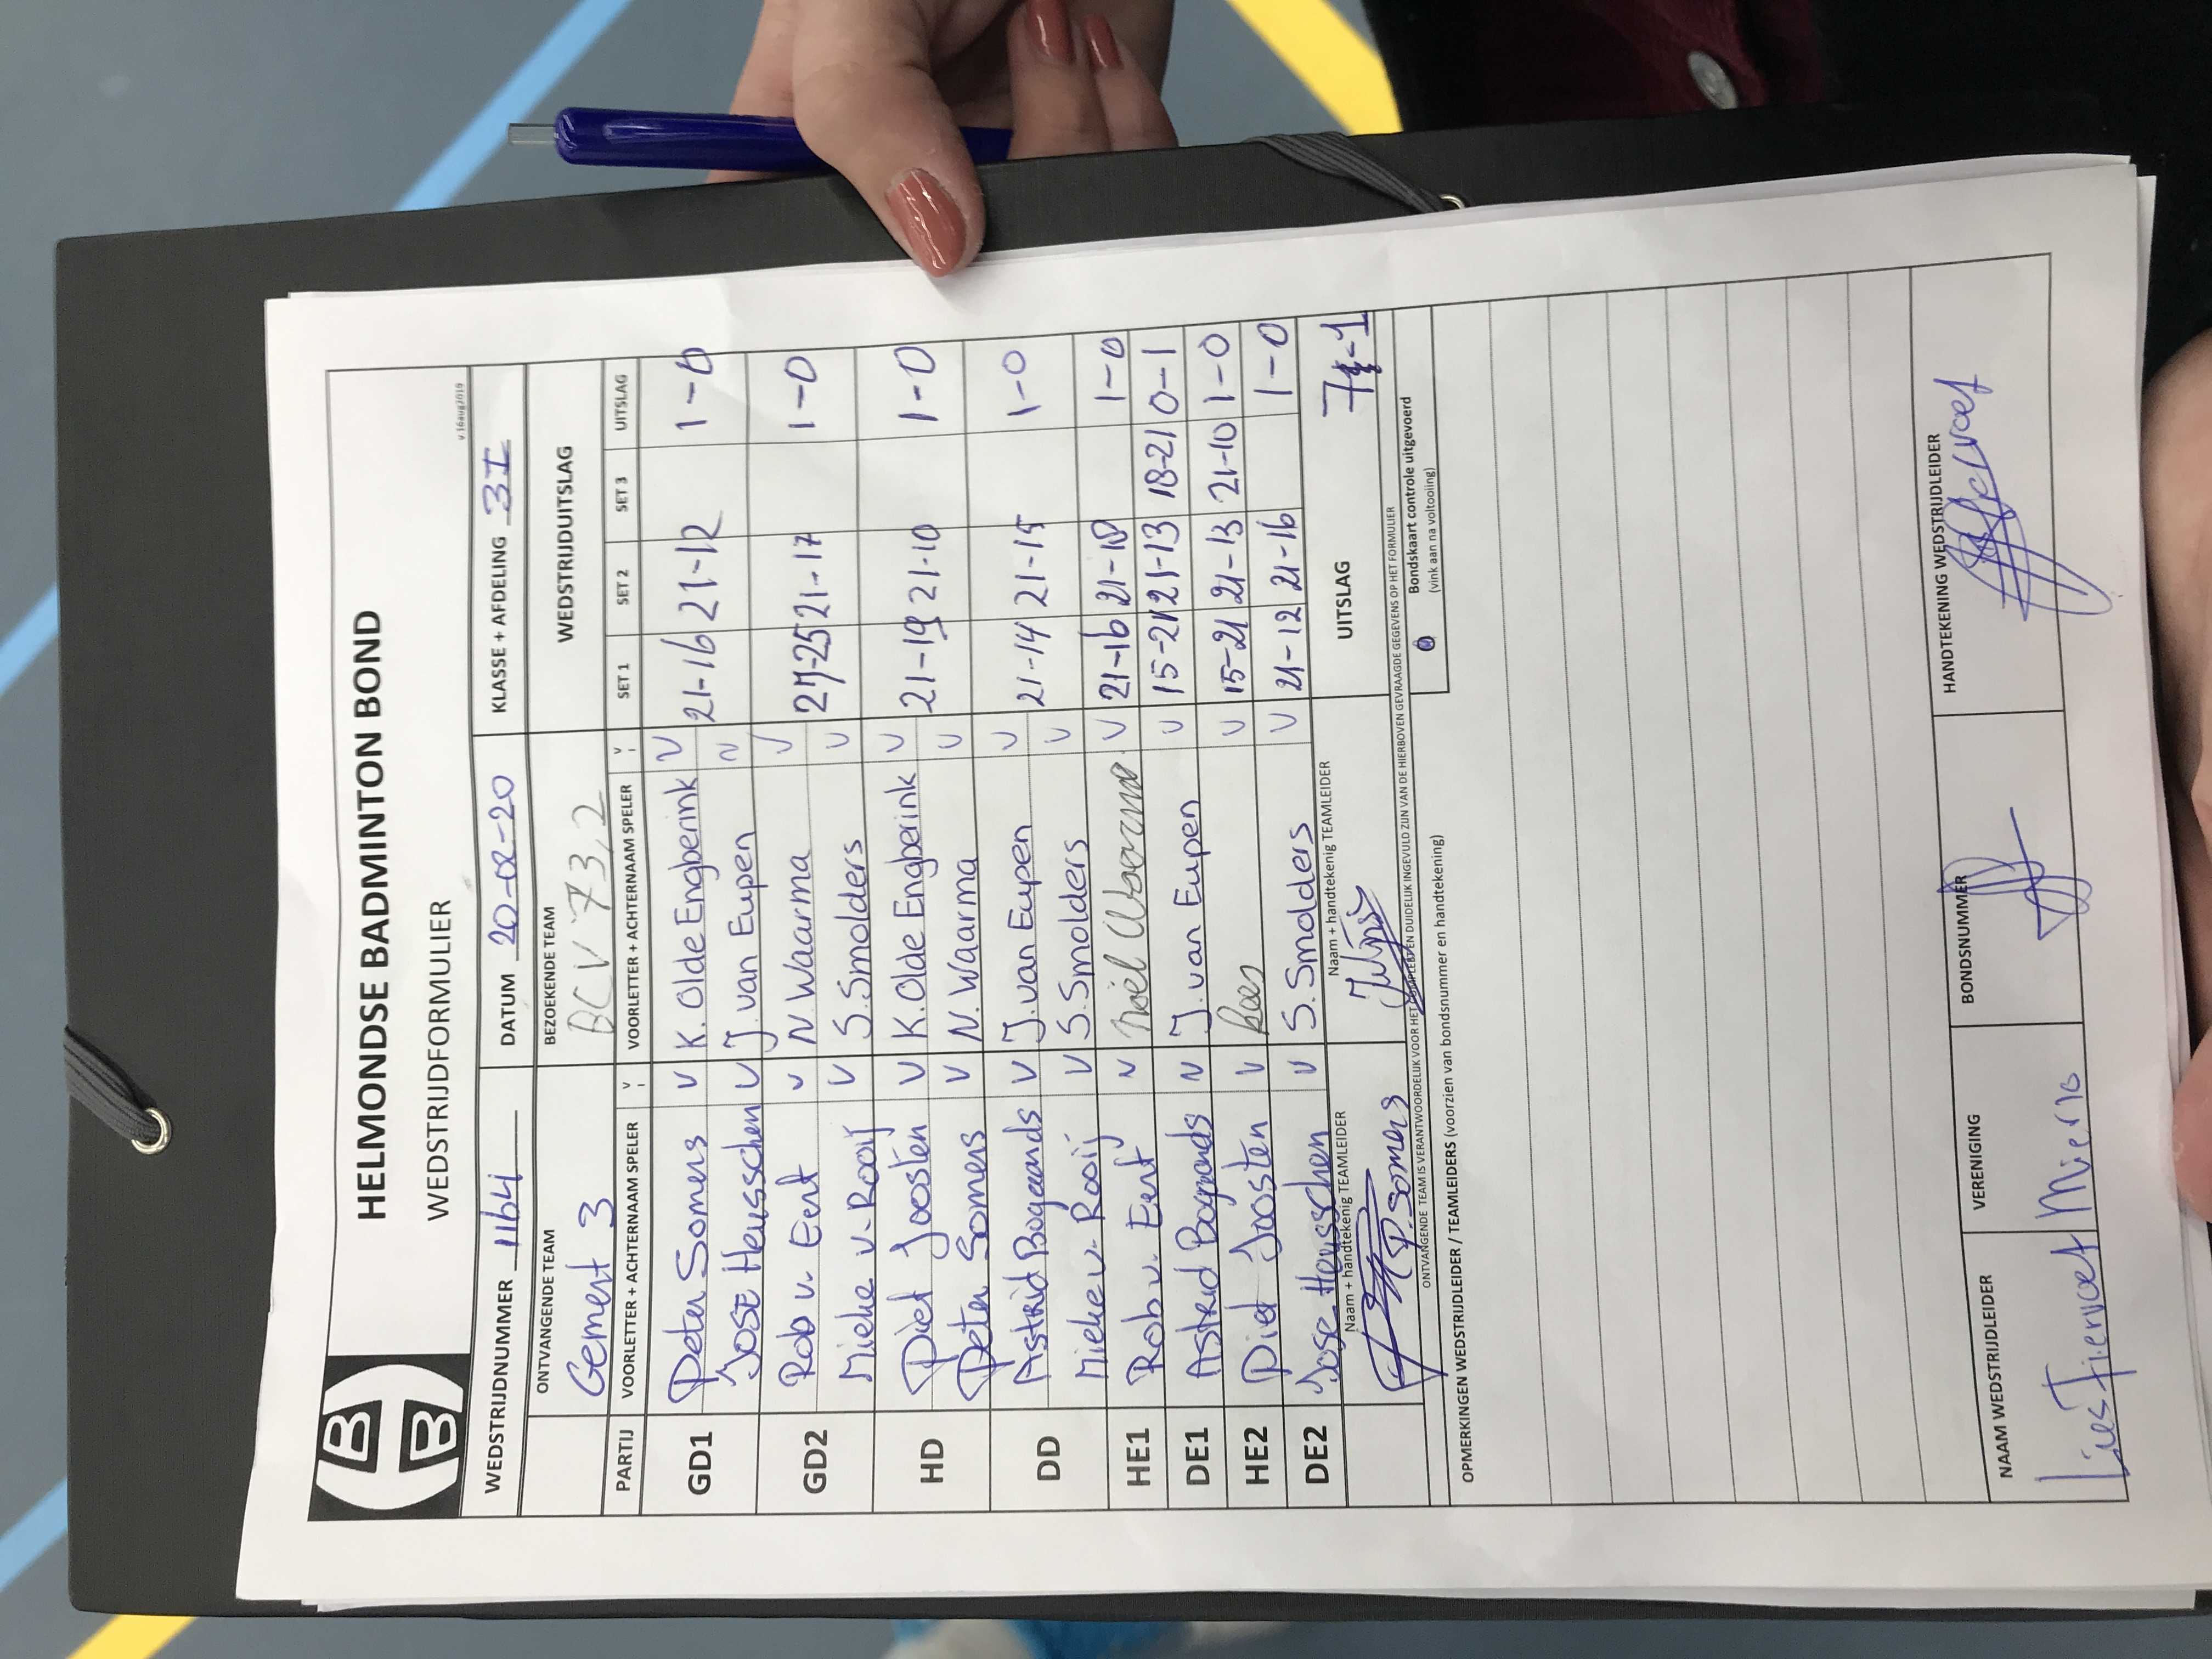 HELMONDSE BADMINTON BOND
WEDSTRIJDFORMULIER
v.16aug2019
WEDSTRIJDNUMMER 1164 DATUM 20-02-20 KLASSE + AFDELING 3I
ONTVANGENDE TEAM BEZOEKENDE TEAM WEDSTRIJDUITSLAG
Gemert 3 BCV'73,2
PARTIJ VOORLETTER + ACHTERNAAM SPELER V VOORLETTER + ACHTERNAAM SPELER V SET 1 SET 2 SET 3 UITSLAG
GD1 Peter Somers V K. Olde Engberink V 21-16 21-12 1-0
José Heusschen V J. van Eupen V
GD2 Rob v. Eert V N. Waarma V 27-25 21-17 1-0
Mieke v. Rooij V S. Smolders V
HD Piet Joosten V K. Olde Engberink V 21-19 21-10 1-0
Peter Somers V N. Waarma V
DD Astrid Bogaards V J. van Eupen V 21-14 21-15 1-0
Mieke v. Rooij V S. Smolders V
HE1 Rob v. Eert V Noël Waarma V 21-16 21-18 1-0
DE1 Astrid Bogaards V J. van Eupen V 15-21 21-13 18-21 0-1
HE2 Piet Joosten V Kees V 15-21 21-13 21-10 1-0
DE2 Jose Heusschen V S. Smolders V 21-12 21-16 1-0
Naam + handtekenig TEAMLEIDER Naam + handtekenig TEAMLEIDER UITSLAG 7-1
P. Somers
ONTVANGENDE TEAM IS VERANTWOORDELIJK VOOR HET COMPLEET EN DUIDELIJK INGEVULD ZIJN VAN DE HIERBOVEN GEVRAAGDE GEGEVENS OP HET FORMULIER
Bondskaart controle uitgevoerd
(vink aan na voltooiing)
OPMERKINGEN WEDSTRIJDLEIDER / TEAMLEIDERS (voorzien van bondsnummer en handtekening)
NAAM WEDSTRIJDLEIDER VERENIGING BONDSNUMMER HANDTEKENING WEDSTRIJDLEIDER
Lies Fiervoet Mierlo